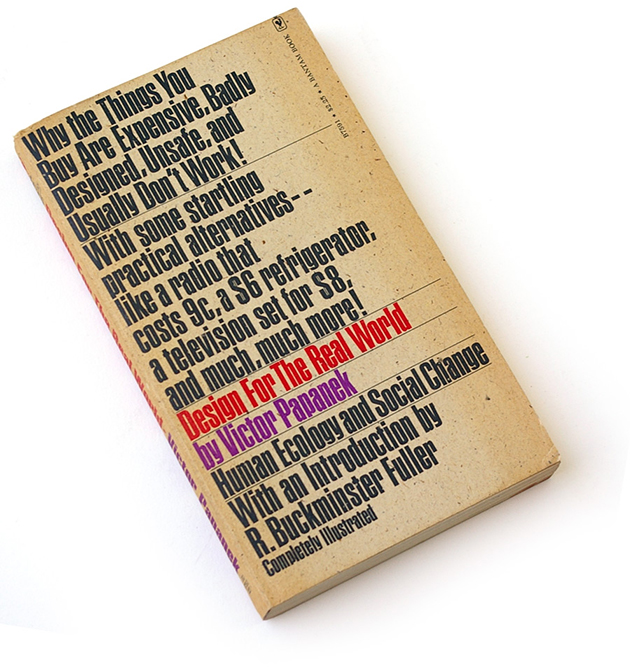 Why the Things You
Buy Are Expensive, Badly
Designed, Unsafe, and
Usually Don't Work!
With some startling
practical alternatives--
like a radio that
costs 9c, a $6 refrigerator,
a television set for $8,
and much, much more!
Design For The Real World
by Victor Papanek
Human Ecology and Social Change
With an Introduction by
R. Buckminster Fuller
Completely Illustrated
B7591 • $2.25 • A BANTAM BOOK
Victor Papanek